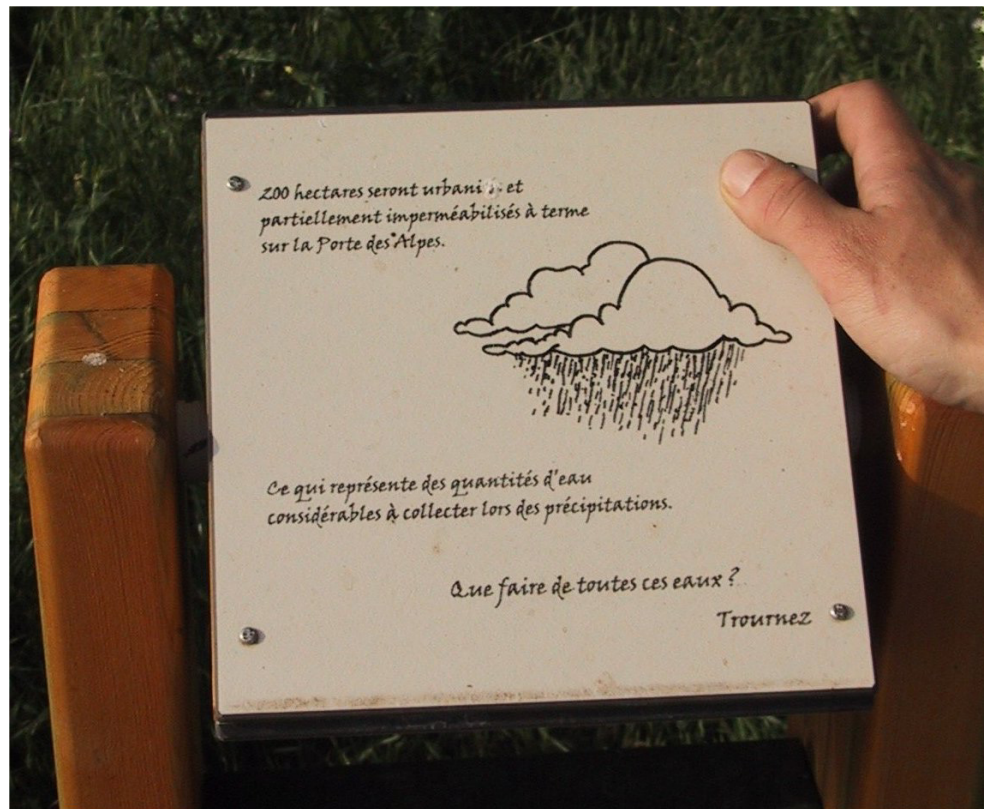 200 hectares seront et
partiellement imperméabilisés à terme
sur la Porte des Alpes.
Ce qui représente des quantités d'eau
considérables à collecter lors des précipitations.
Que faire de toutes ces eaux ?
Trournez